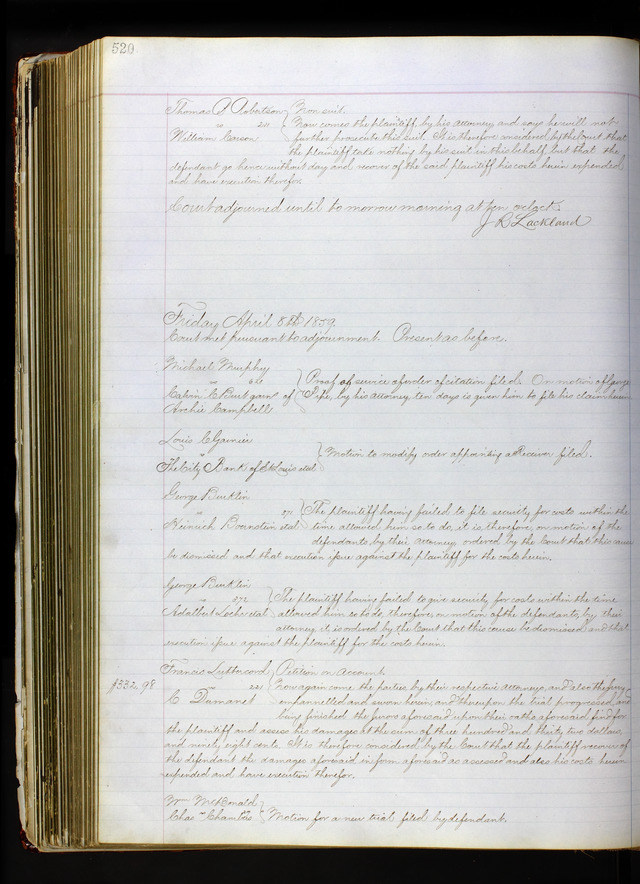 520
Thomas A Robertson } Non suit.
" 211 Now comes the plaintiff by his attorney and says he will not
William Carson further prosecute this suit. It is therefore considered by the Court that
the plaintiff take nothing by his suit in this behalf but that the
defendant go hence without day and recover of the said plaintiff his costs herein expended
and have execution therefor.
Court adjourned until tomorrow morning at ten oclock.
J R Lackland
Friday April 8th 1859
Court met pursuant to adjournment. Present as before.
Michael Murphy
" Proof of service of order of citation filed. On motion of George
Calvin C Burt garns of Pipe, by his attorney ten days is given him to file his claim herein
Archie Campbell
Louis C Garnier
" Motion to modify order appointing a Receiver filed.
The City Bank of St Louis etal
George Bucklin
" 271 The plaintiff having failed to file security for costs within the
Heinrich Boernstein etal time allowed him so to do, it is, therefore, on motion of the
defendants by their attorney ordered by the Court that this cause
be dismissed and that execution issue against the plaintiff for the costs herein.
George Bucklin
" 272 The plaintiff having failed to give security for costs within the time
Adalbert Loehr etal allowed him so to do therefore on motion of the defendants, by their
attorney it is ordered by the Court that this cause be dismissed and that
execution issue against the plaintiff for the costs herein.
Francis Petition on Account
$332.98 " 221 Now again come the parties by their respective attorneys, and also the jury
C Dumanet empannelled and sworn herein, and thereupon the trial progressed, and
being finished the jurors aforesaid upon their oaths aforesaid find for
the plaintiff and assess his damages at the sum of three hundred and thirty two dollars,
and ninety eight cents. It is therefore considered by the Court that the plaintiff recover of
the defendant the damages aforesaid in form aforesaid as assessed and also his costs herein
expended and have execution therefor.
Wm McDonald
Chas Chambers Motion for a new trial filed by defendant.